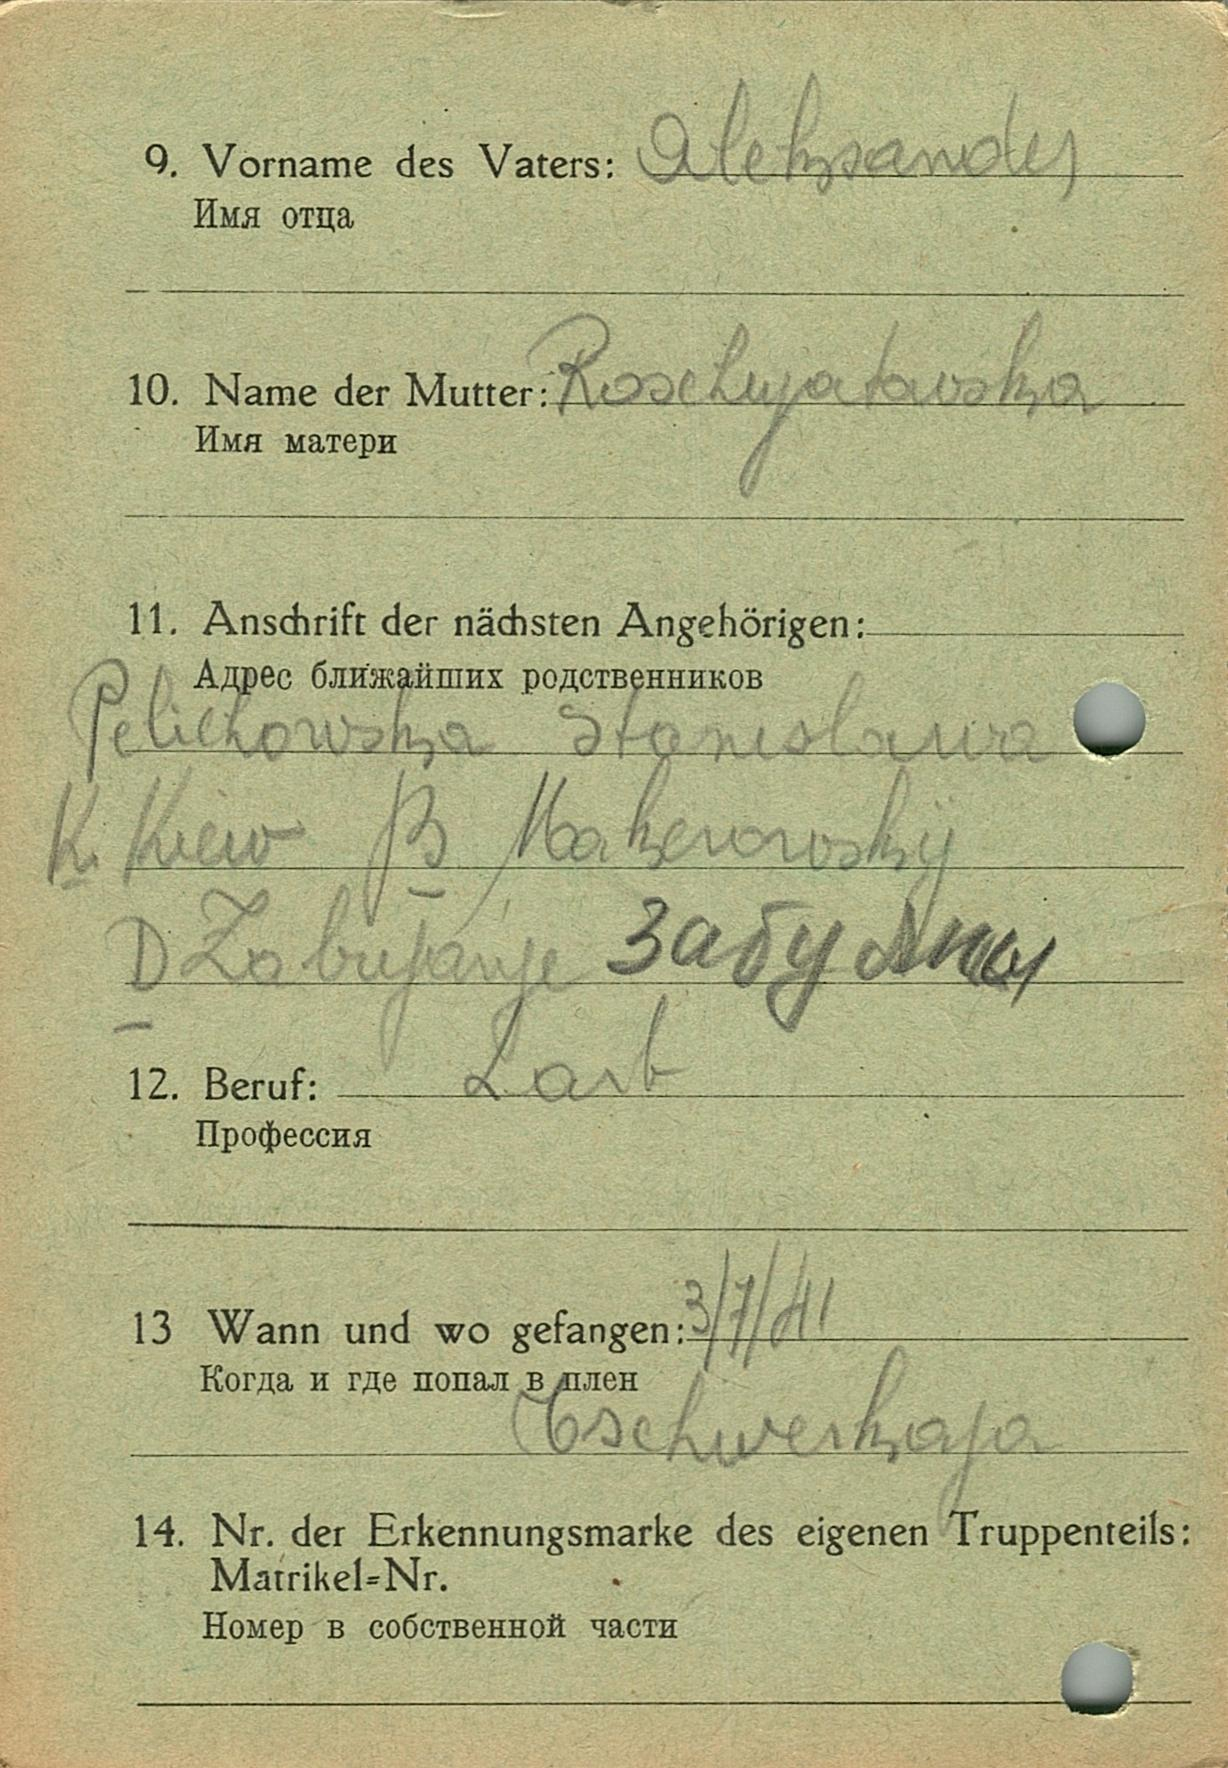 9. Vorname des Vaters: Aleksander
Имя отца
10. Name der Mutter:
Имя матери
11. Anschrift der nächsten Angehörigen:
Адрес ближайших родственников
Pelichowska Stanislawa
K. Kiew
D Zabujanje Забуяны
12. Beruf:
Профессия
13 Wann und wo gefangen: 3/7/41
Когда и где попал в плен
14. Nr. der Erkennungsmarke des eigenen Truppenteils:
Matrikel=Nr.
Номер в собственной части